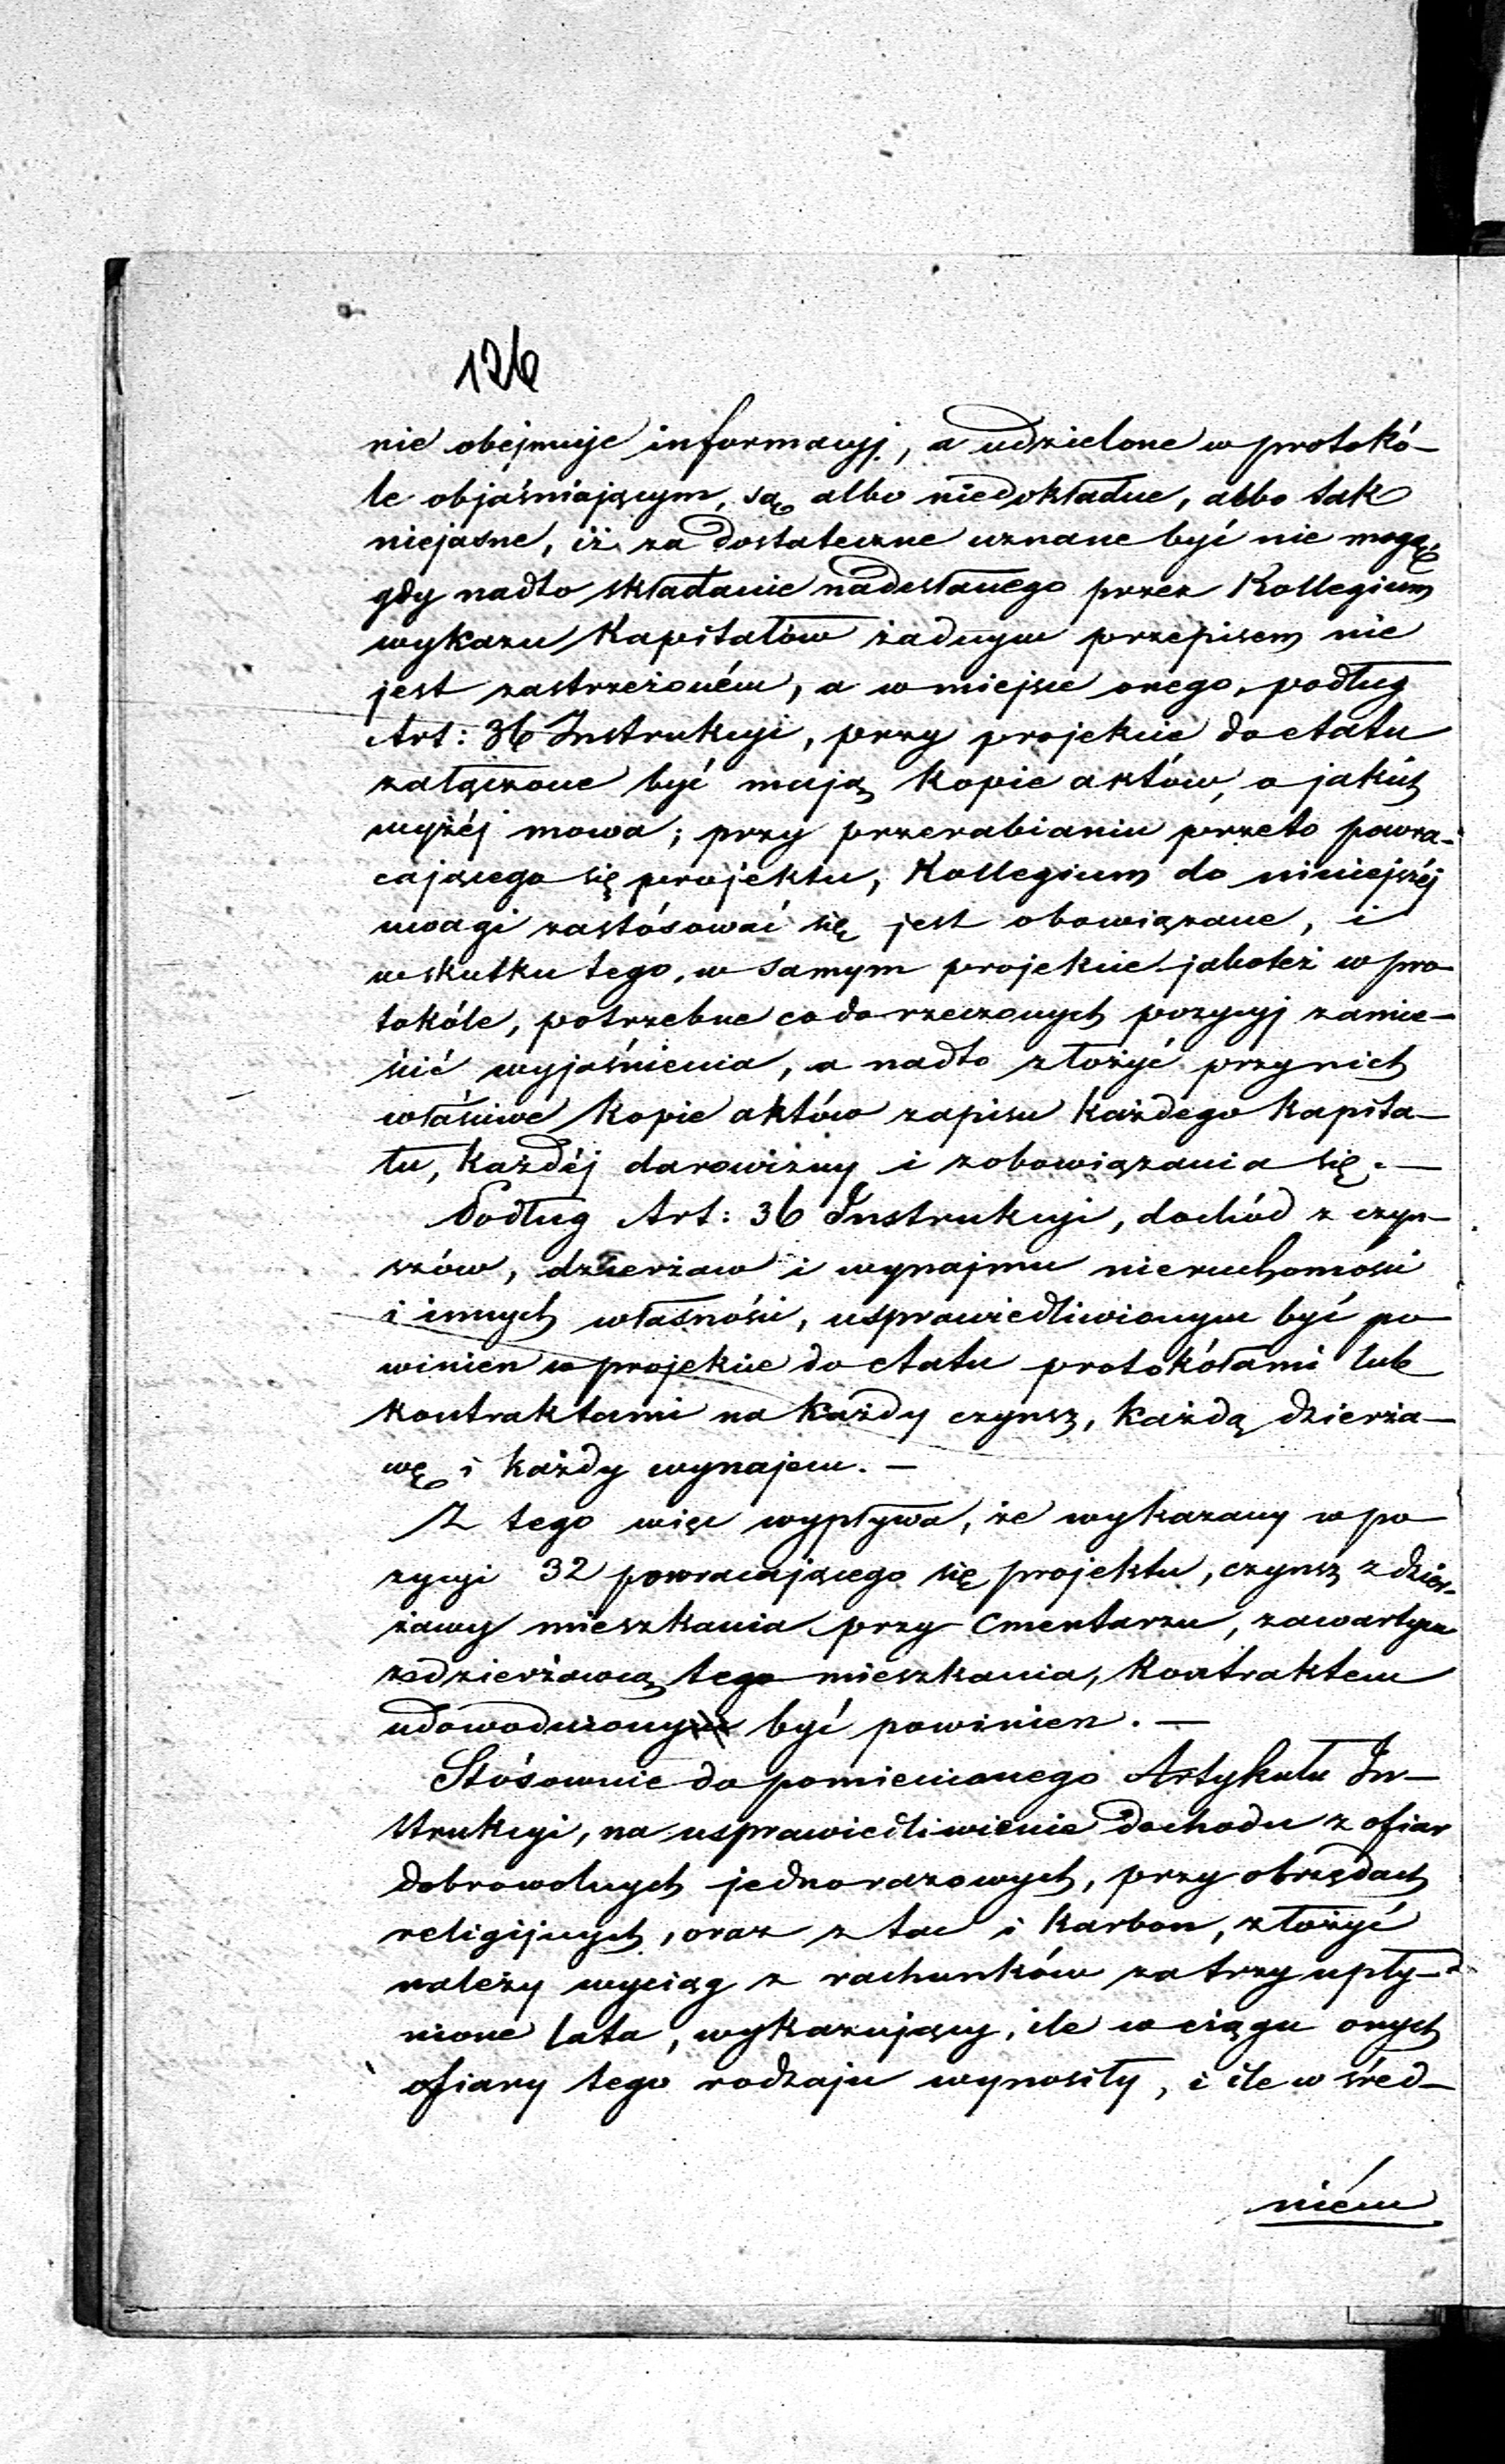 126
nie obejmuje informacyj, a udzielone w protokó-
le objaśniającym, są albo niedokładne, albo tak
niejasne, iż za dostateczne uznane być nie mogą,
gdy nadto składanie nadesłanego przez Kollegium
wykazu Kapitałów żadnym przepisem nie
jest zastrzeżoném, a w miejsce onego, podług
Art: 36 Instrukcyi, przy projekcie do etatu
załączone być mają kopie aktów, o jakich
wyżéj mowa; przy przerabianiu przeto powra-
cającego się projektu, Kollegium do niniejszéj
uwagi zastósować się jest obowiązane, i
wskutku tego, w samym projekcie jakoteż w pro
tokóle, potrzebne co do rzeczonych pozycyj zamie-
ścić wyjaśnienia, a nadto złożyć przy nich
właściwe kopie aktów zapisu każdego kapita-
łu, każdéj darowizny i zobowiązania się. —
Podług Art: 36 Instrukcyi, dochód z czyn-
szów, dzierżaw i wynajmu nieruchomości
i innych własności, usprawiedliwionym być po
winien w projekcie do etatu protokółami lub
kontraktami na każdy czynsz, każdą dzierża-
wę i każdy wynajem. —
Z tego więc wypływa, że wykazany w po
zycyi 32 powracającego się projektu, czynsz z dzier-
żawy mieszkania przy Cmentarzu, zawartym
z dzierżawcą tego mieszkania, kontraktem
udowodniony być powinien. —
Stósownie do pomienionego Artykułu In-
strukcyi, na usprawiedliwienie dochodu z ofiar
dobrowolnych jednorazowych, przy obrzędach
religijnych, oraz z tac i karbon, złożyć
należy wyciąg z rachunków za trzy upły-
nione lata, wykazujący, ile w ciągu onych
ofiary tego rodzaju wynosiły, i ile w śred-
niém